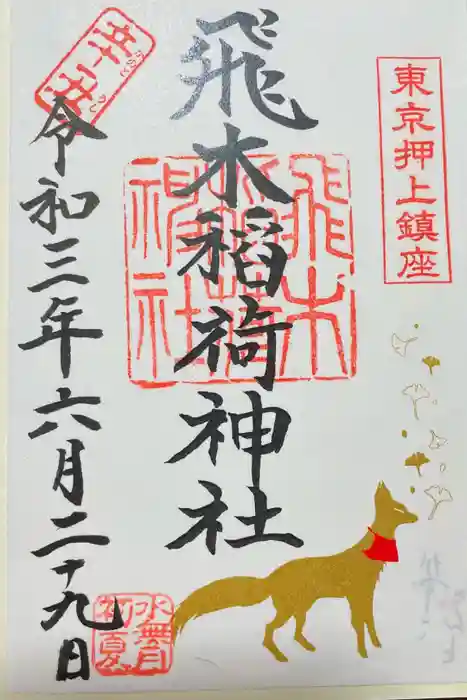 東京押上鎮座
飛木稲荷神社
飛木
稲荷
神社
辛丑
かのと うし
令和三年六月二十九日
水無月
初夏